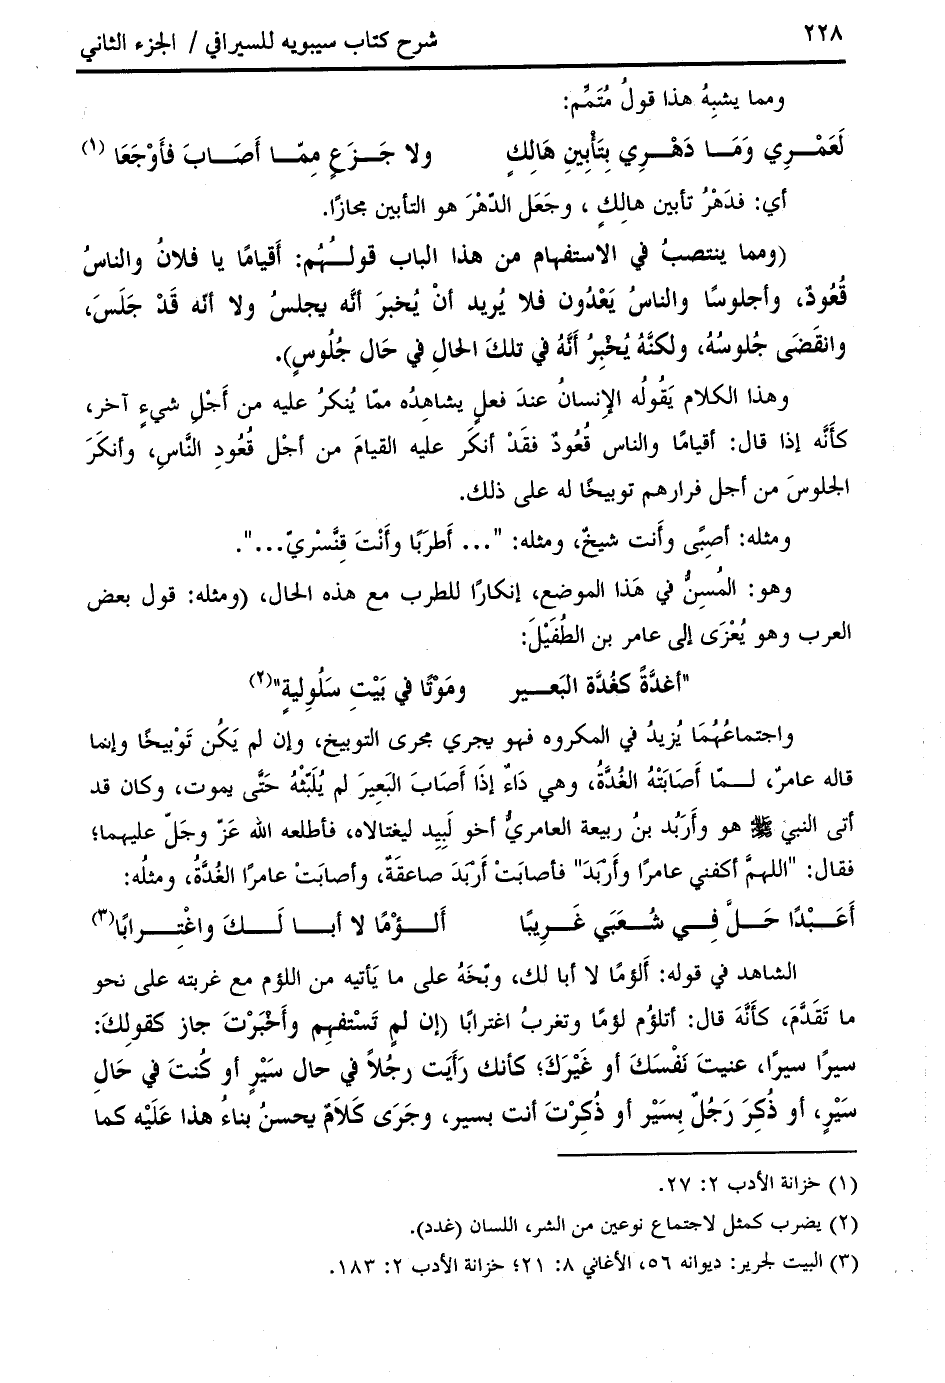 ٢٢٨ شرح كتاب سيبويه للسيرافي / الجزء الثاني
ومما يشبهُ هذا قولُ مُتَمِّم:
لَعَمْـــرِي وَمَـــا دَهْـــرِي بِتَأْبِينِ هَالِكٍ ولا جَـــزَعٍ مِمَّـــا أَصَـــابَ فَأَوْجَعَا (١)
أي: فدَهْرُ تأبين هالِكٍ، وجَعَل الدّهْرَ هو التأبين مجازًا.
(ومما ينتصبُ في الاستفهام من هذا الباب قولـــهُم: أَقيامًا يا فلانُ والناسُ
قُعُودٌ، وأجلوسًا والناسُ يَعْدُون فلا يُريد أنْ يُخبرَ أنَّه يجلسُ ولا أنّه قَدْ جَلَسَ،
وانقَضَى جُلوسُهُ، ولكنَّهُ يُخْبِرُ أَنَّهُ في تلكَ الحالِ في حَال جُلُوسٍ).
وهذا الكلام يَقُولُه الإنسانُ عندَ فعلٍ يشاهدُه ممّا يُنكرُ عليه من أَجْلِ شيءٍ آخر،
كأنَّه إذا قال: أقيامًا والناس قُعُودٌ فقَدْ أنكَر عليه القيامَ من أجْل قُعُودِ النَّاسِ، وأنكَرَ
الجلوسَ من أجل فرارهم توبيخًا له على ذلك.
ومثله: أصبًى وأنت شيخٌ، ومثله: "... أَطرَبًا وأَنْتَ قِنَّسْريّ...".
وهو: المُسِنُّ في هَذا الموضع، إنكارًا للطرب مع هذه الحال، (ومثله: قول بعض
العرب وهو يُعْزَى إلى عامر بن الطُفَيْلَ:
"أغدَّةً كغُدَّة البَعـــير ومَوْتًا في بَيْتِ سَلُولِيةٍ"(٢)
واجتماعُهُمَا يُزيدُ في المكروه فهو يجري مجرى التوبيخ، وإن لم يَكُن تَوْبيخًا وإنما
قاله عامرٌ، لـــمّا أَصَابَتْهُ الغُدَّةُ، وهي دَاءٌ إذَا أَصَابَ البَعِيرَ لم يُلَبّثْهُ حَتَّى يموت، وكان قد
أتى النبي ﷺ هو وأَرْبُد بنُ ربيعة العامريُّ أخو لَبِيد ليغتالاه، فأطلعه الله عَزّ وجَلّ عليهما؛
فقال: "اللهمَّ أكفني عامرًا وأَرْبَدَ" فأصابَتْ أَرْبَدَ صاعقَةٌ، وأصابَتْ عامرًا الغُدَّةُ، ومثلُه:
أَعَـــبْدًا حَـــلَّ فِـــي شُـــعَبَي غَـــرِيبًا أَلـــؤْمًا لا أبـــا لَـــكَ واغْتِـــرابًا(٣)
الشاهد في قوله: أَلؤمًا لا أبا لك، وبّخَهُ على ما يَأتيه من اللؤم مع غربته على نحو
ما تَقَدَّمَ، كأنَّهَ قال: أتلؤم لؤمًا وتغربُ اغترابًا (إن لم تَسْتفهم وأَخْبَرْتَ جاز كقولِكَ:
سيرًا سيرًا، عنيتَ نَفْسَكَ أو غَيْرَكَ؛ كأنك رَأَيَت رجُلاً في حال سَيْرٍ أو كُنتَ في حَالِ
سَيْرٍ، أو ذُكِرَ رَجُلٌ بِسَيْر أو ذُكِرْتَ أنت بسير، وجَرَى كَلاَمٌ يحسنُ بناءُ هذا عَلَيْه كما
(١) خزانة الأدب ٢: ٢٧.
(٢) يضرب كمثل لاجتماع نوعين من الشر، اللسان (غدد).
(٣) البيت لجرير: ديوانه ٥٦، الأغاني ٨: ٢١؛ خزانة الأدب ٢: ١٨٣.